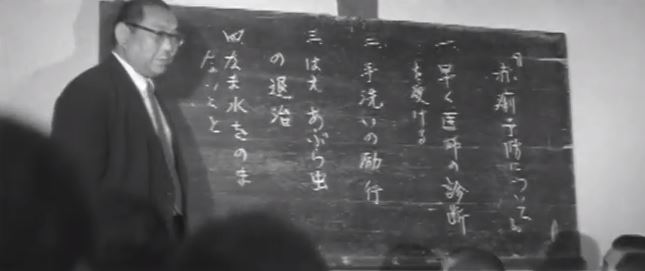 赤痢予防について
一、早く医師の診断
を受ける
二、手洗いの励行
三、はえ あぶら虫
の退治
四、なま水をのま
ないこと